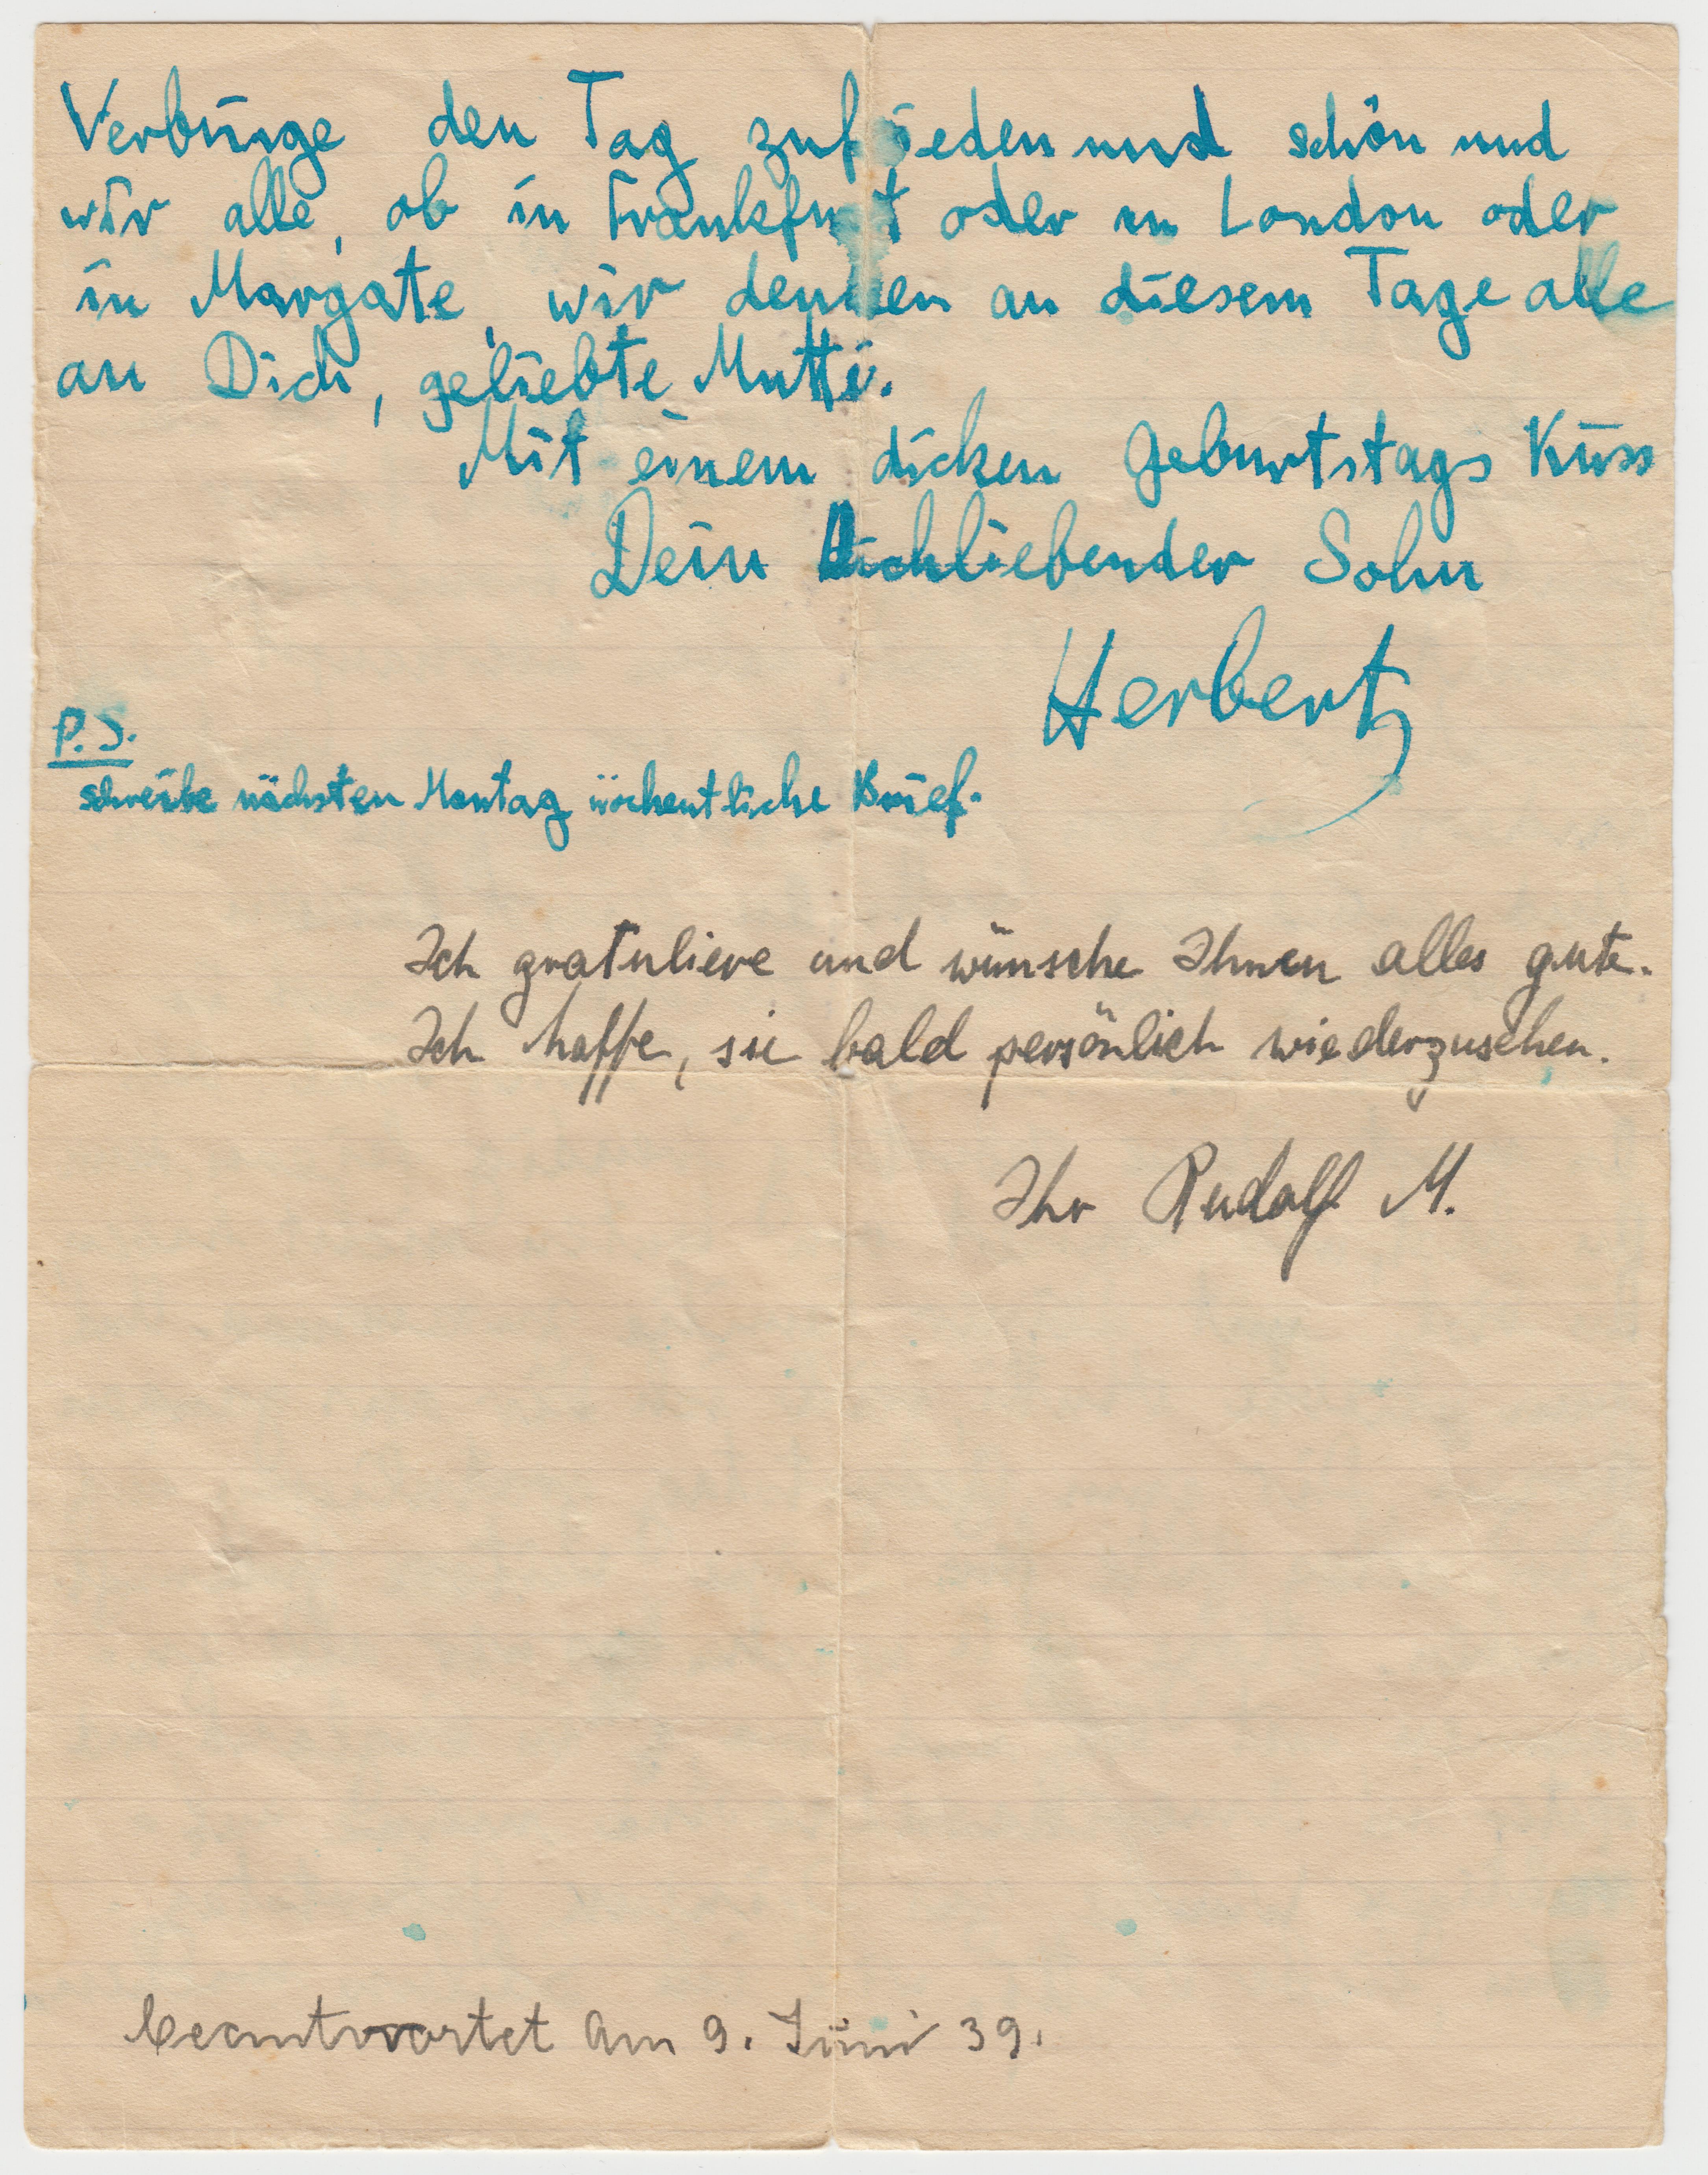 Verbringe den Tag zufrieden und schön und
wir alle, ob in Frankfurt oder in London oder
in Margate, wir denken an diesem Tage alle
an Dich, geliebte Mutti.
Mit einem dicken Geburtstags Kuss
Dein Dichliebender Sohn
Herbert
P.S.
schreibe nächsten Montag wöchentliche Brief.
Ich gratuliere und wünsche Ihnen alles gute.
Ich hoffe, sie bald persönlich wiederzusehen.
Ihr Rudolf M.
beantwortet am 9. Juni 39.